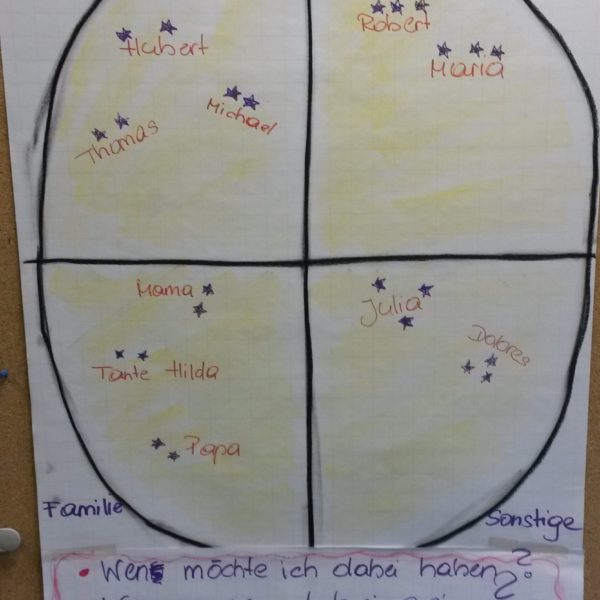 Robert
Hubert
Maria
Michael
Thomas
Mama
Julia
Dolores
Tante Hilda
Papa
Familie
Sonstige
• Wen möchte ich dabei haben?